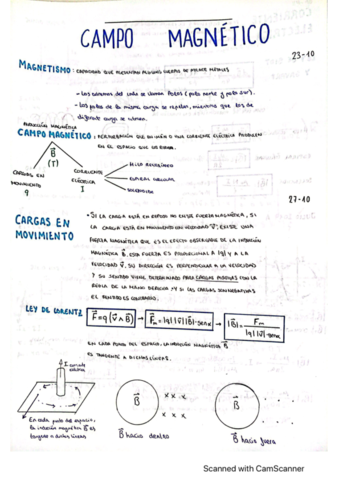 CAMPO MAGNÉTICO
23-10
MAGNETISMO: CAPACIDAD QUE PRESENTAN ALGUNOS CUERPOS DE ATRAER METALES
- Los extremos del imán se llaman Polos (polo norte y polo sur).
- Los polos de la misma carga se repelen, mientras que los de
diferente carga se atraen.
INDUCCIÓN MAGNÉTICA
CAMPO MAGNÉTICO: PERTURBACIÓN QUE UN IMÁN O UNA CORRIENTE ELÉCTRICA PRODUCEN
EN EL ESPACIO QUE LOS RODEA.
B
(T)
CARGAS EN
MOVIMIENTO
q
CORRIENTE
ELÉCTRICA
I
HILO RECTILÍNEO
ESPIRAL CIRCULAR
SOLENOIDE
27-10
CARGAS EN
MOVIMIENTO
SI LA CARGA ESTÁ EN REPOSO NO EXISTE FUERZA MAGNÉTICA, SI
LA CARGA ESTÁ EN MOVIMIENTO CON VELOCIDAD V, EXISTE UNA
FUERZA MAGNÉTICA QUE ES EL EFECTO OBSERVABLE DE LA INDUCCIÓN
MAGNÉTICA B. ESTA FUERZA ES PROPORCIONAL A |q| Y A LA
VELOCIDAD V. SU DIRECCIÓN ES PERPENDICULAR A LA VELOCIDAD
Y SU SENTIDO VIENE DETERMINADO PARA CARGAS POSITIVAS CON LA
REGLA DE LA MANO DERECHA Y SI LAS CARGAS SON NEGATIVAS
EL SENTIDO ES CONTRARIO.
LEY DE LORENTZ F=q(V∧B) → Fm=|q||V||B|·senα → |B|= Fm / |q||V|·senα
EN CADA PUNTO DEL ESPACIO, LA INDUCCIÓN MAGNÉTICA B
ES TANGENTE A DICHAS LÍNEAS.
I corriente
En cada punto del espacio,
la inducción magnética B es
tangente a dichas líneas
B
x x x
x x
B hacia dentro
B
B hacia fuera
Scanned with CamScanner